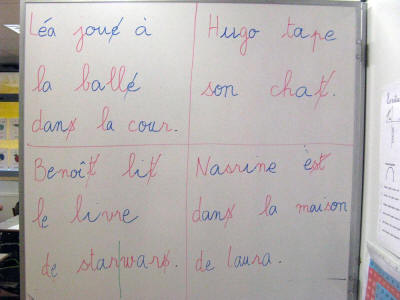 Léa joue à
la ballé
dans la cour.
Hugo tape
son chat.
Benoît lit
le livre
de starwars.
Nasrine èst
dans la maison
de laura.